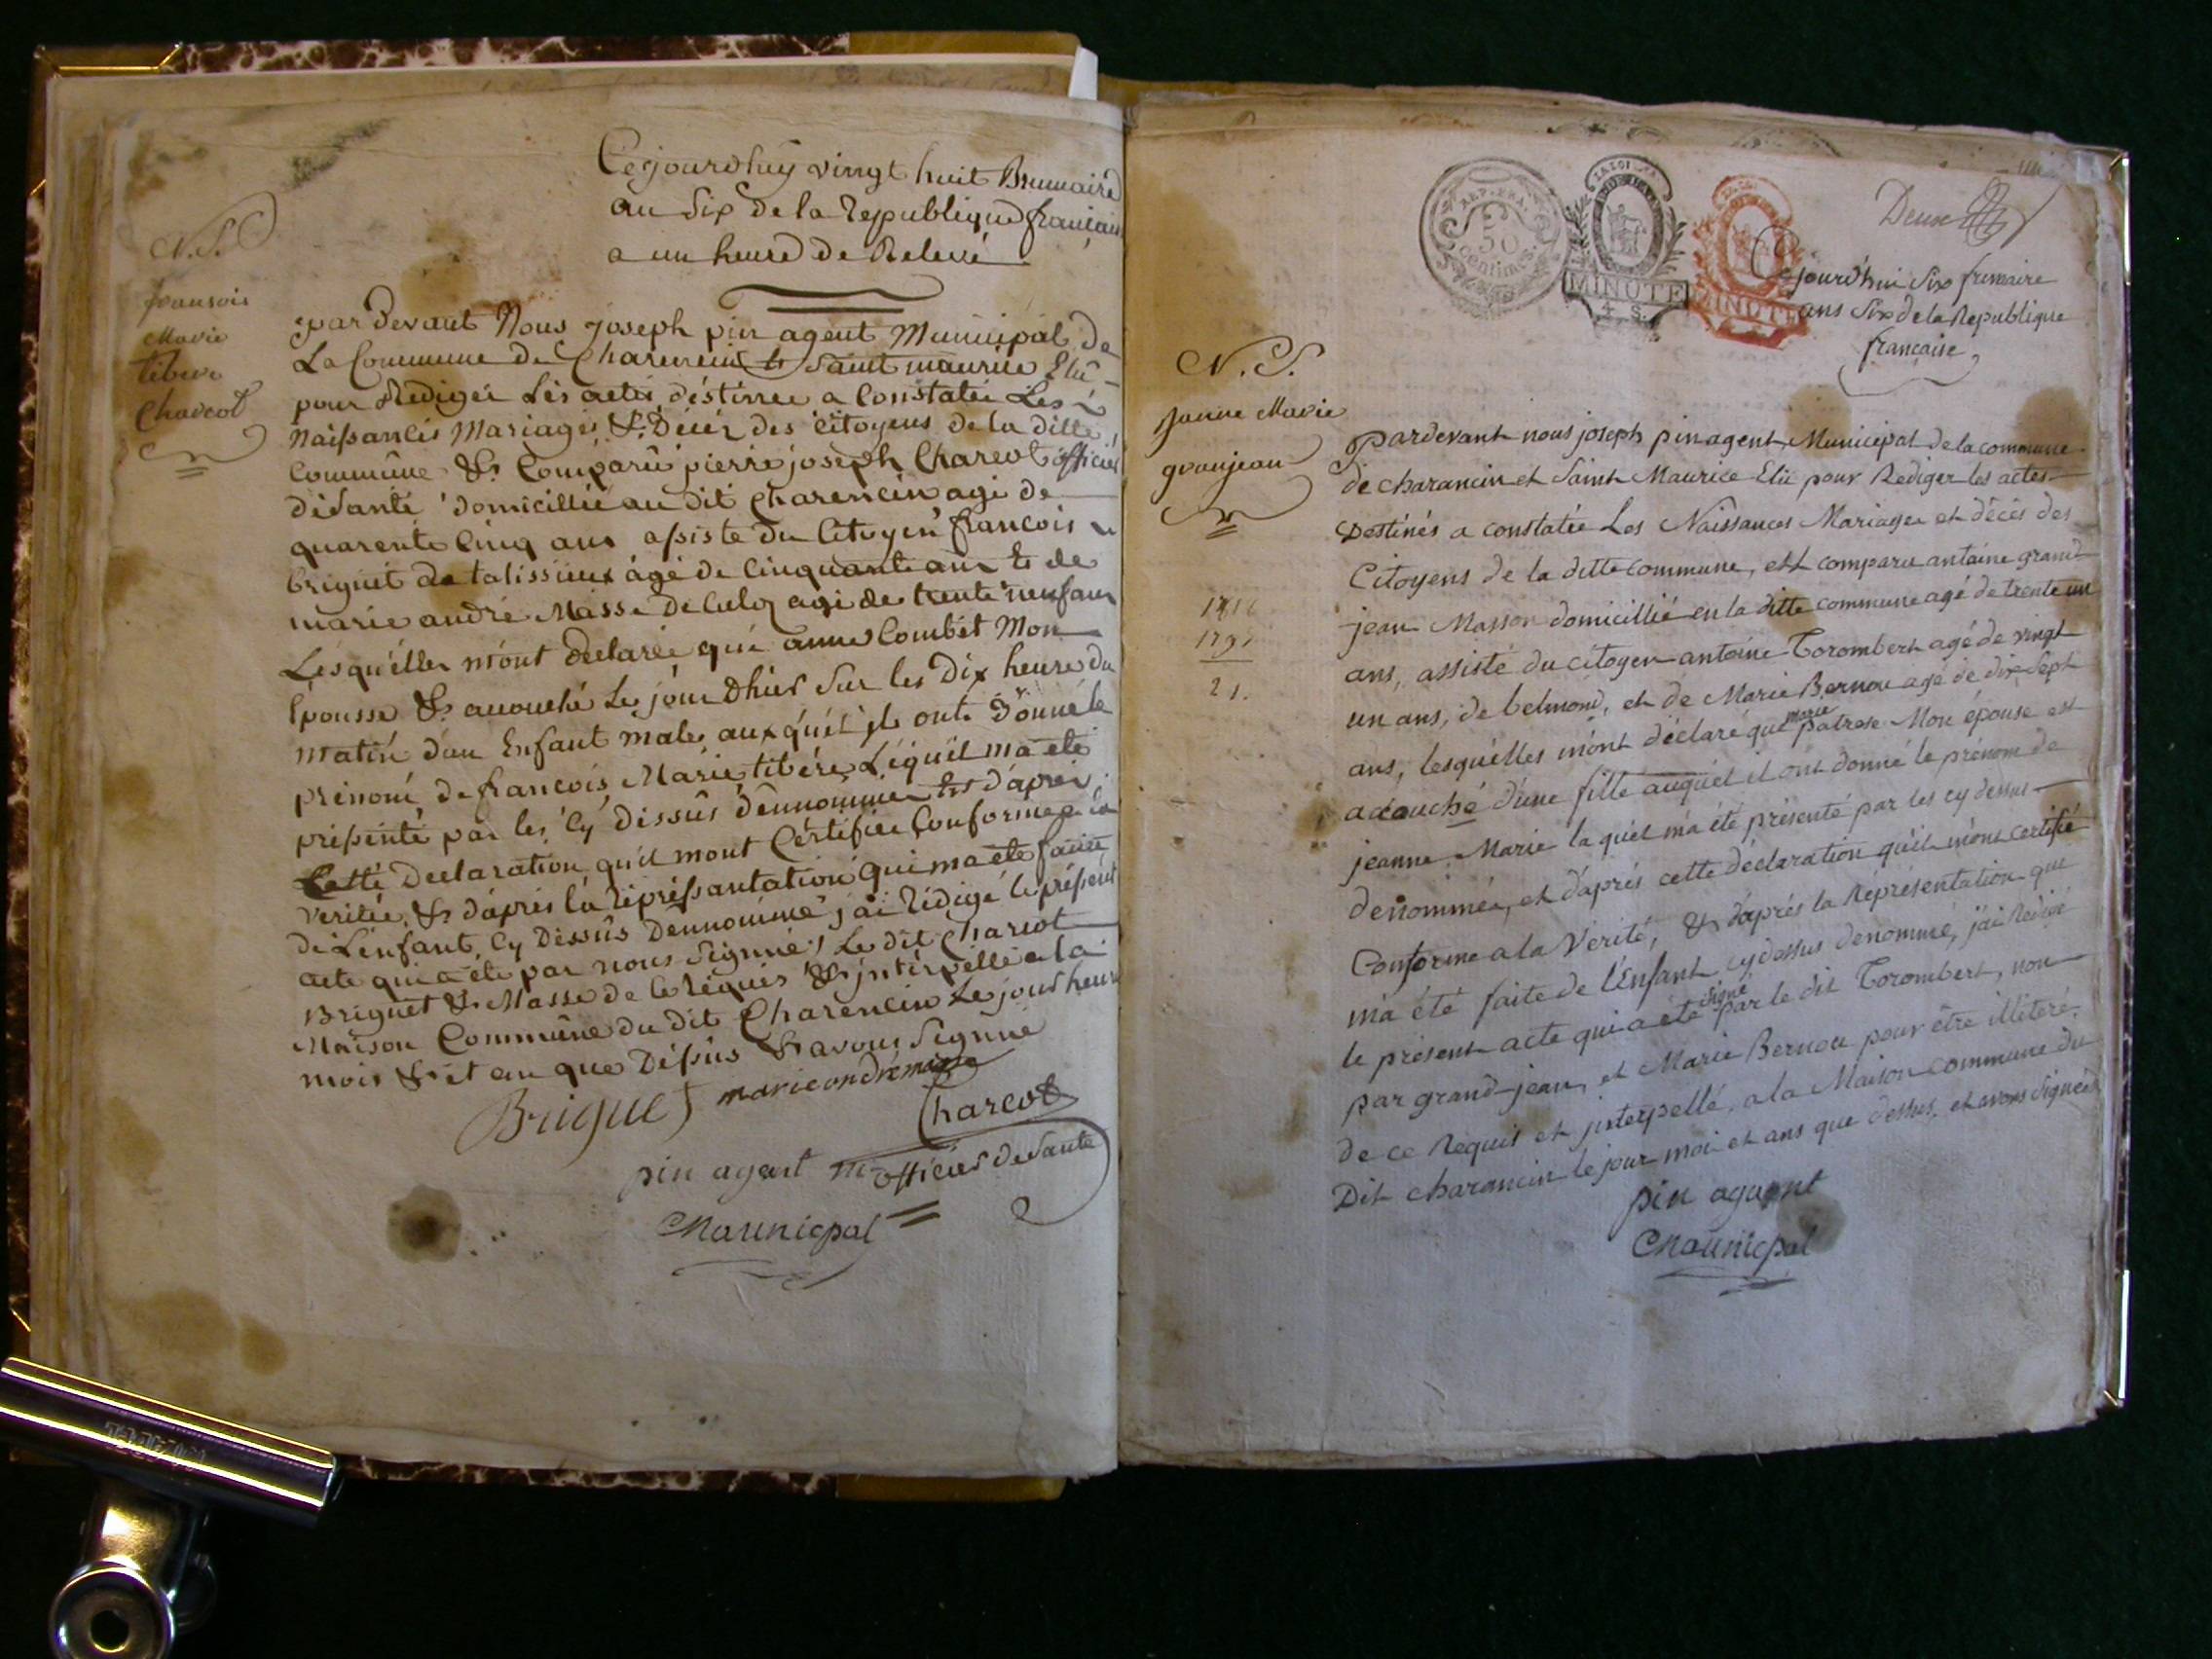 Cejourdhuy vingt huit Brumaire
an Six de la Republique français
a un heure de Relevé
N. S.
fransois
Marie
tibere
Charcot
par devant Nous joseph pin agent Municipal de
La Commune de Charencin et Saint maurice Elû
pour Rediger Les actes déstinée a Constatée Les
Naissances Mariages & Décéz des Citoyens de la ditte
Commûne & Comparû pierre joseph Charcot officier
désanté domicillié au dit Charencin agé de
quarente Cinq ans assisté du Citoyen francois
briguet de talissieux agé de Cinquante ans et de
marie andré Masse de Culoz agé de trente neuf ans
Lésquélles m'ont déclarée qué anne Combet Mon
Epousse & acouché Le jour d'hier Sur les Dix heures du
matin d'un Enfant male auxquél il ont donné le
prénom de francois Marie tibére Léquél ma été
présenté par les Cy déssûs dénnommer et d'aprés
Cetté Déclaration qu'il mont Cértifiée Conforme a la
verité & d'aprés la répréssantation qui ma été faitte
de L'enfant Cy Déssûs Dénnommé j'ai rédigé le présent
acte qui a été par nous Signné, Le dit Charcot
Briguet & Masse de Ce réquis & intérpéllé a la
Maison Commûne du dit Charencin Le jour heure
mois & et an que Déssûs & avons Signné
Briguet marie andré masse
Charcot
pin agant m officier de Santé
Maunicpal
30
centimes
LA LOI
MINUTE
4 S.
MINUTE
Deux
Cejourd'hui Six frimaire
ans Six de la Republique
française
N. S.
Jeanne Marie
granjean
179.
21.
Pardevant nous joseph pin agent Municipal de la commune
de charancin et Saint Maurice Elû pour Rediger les actes
Destinés a constatée Les Naissances Mariages et décès des
Citoyens de la ditte commune, est comparu antoine grand
jean Masson domicillié en la ditte commune agé de trente un
ans, assisté du citoyen antoine Torombert agé de vingt
un ans, de belmond, et de Marie Bernou agé de dix Sept
ans, lesquélles m'ont déclaré que marie patrase Mon épouse est
acouché d'une fille auquél il ont donné le prénom de
jeanne Marie la quél m'a été présenté par les cy dessus
denommée, et d'aprés cette déclaration qu'il m'ont certifié
Conforme a la Verité, & d'aprés la Réprésentation que
m'a été faite de l'Enfant cy dessus denommé, j'ai Redigé
le présent acte qui a été signé par le dit Torombert, non
par grand-jean, et Marie Bernou pour être illétéré,
de ce Requis et interpellé, a la Maison commune du
Dit charancin le jour moi et ans que dessus, et avons signéés
pin agaent
Maunicpal